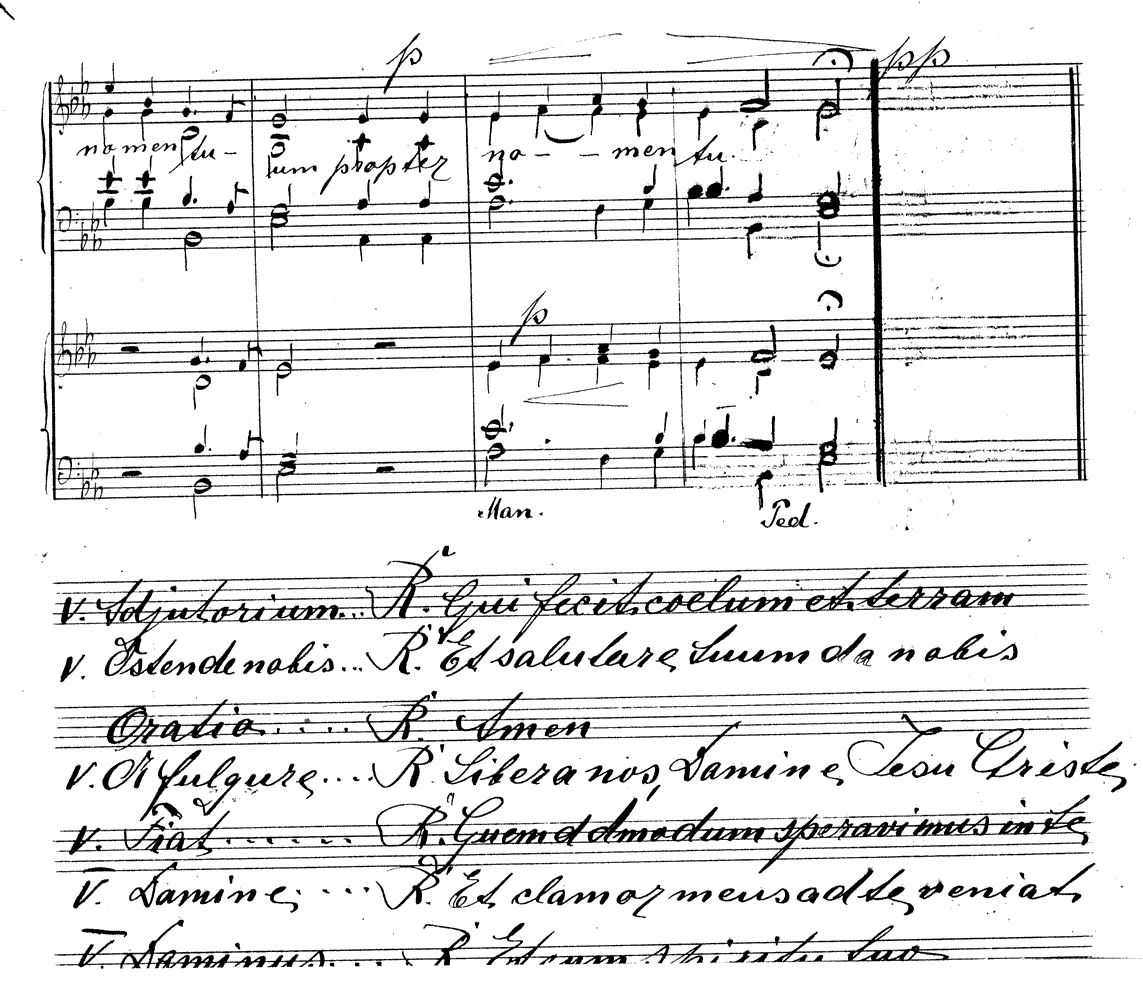 p pp
nomen tu- um propter no - - men tu.
p
Man. Ped.
V. Adjutorium... R. Qui fecit coelum et terram
V. Ostende nobis... R. Et salutare tuum da nobis
Oratio...... R. Amen
V. A fulgure.... R. Libera nos, Domine, Jesu Christe,
V. Fiat....... R. Quemadmodum speravimus in te
V. Domine.... R. Et clamor meus ad te veniat
V. Dominus.... R. Et cum spiritu tuo